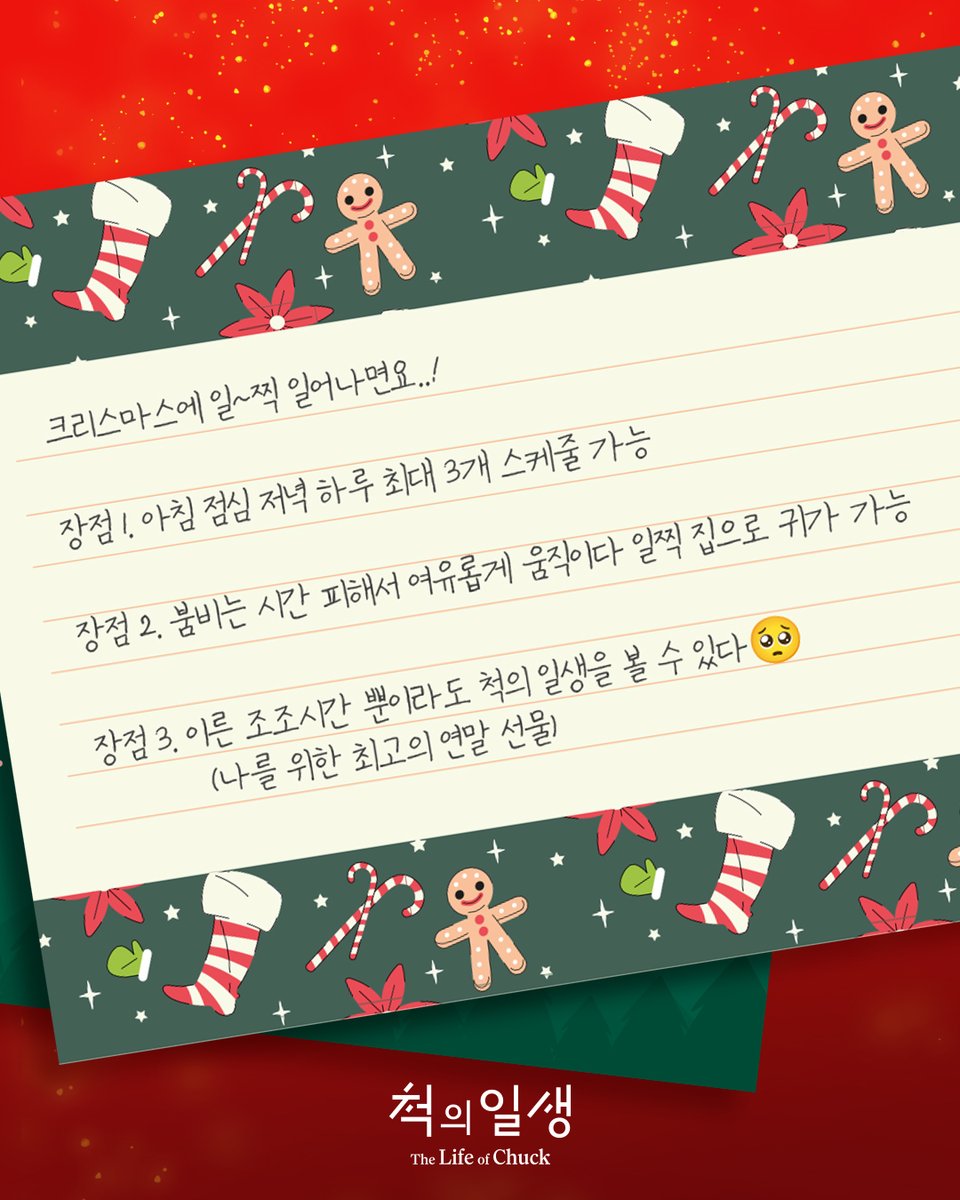 크리스마스에 일~찍 일어나면요..!
장점 1. 아침 점심 저녁 하루 최대 3개 스케줄 가능
장점 2. 붐비는 시간 피해서 여유롭게 움직이다 일찍 집으로 귀가 가능
장점 3. 이른 조조시간 뿐이라도 척의 일생을 볼 수 있다🥺
(나를 위한 최고의 연말 선물)
척의 일생
The Life of Chuck